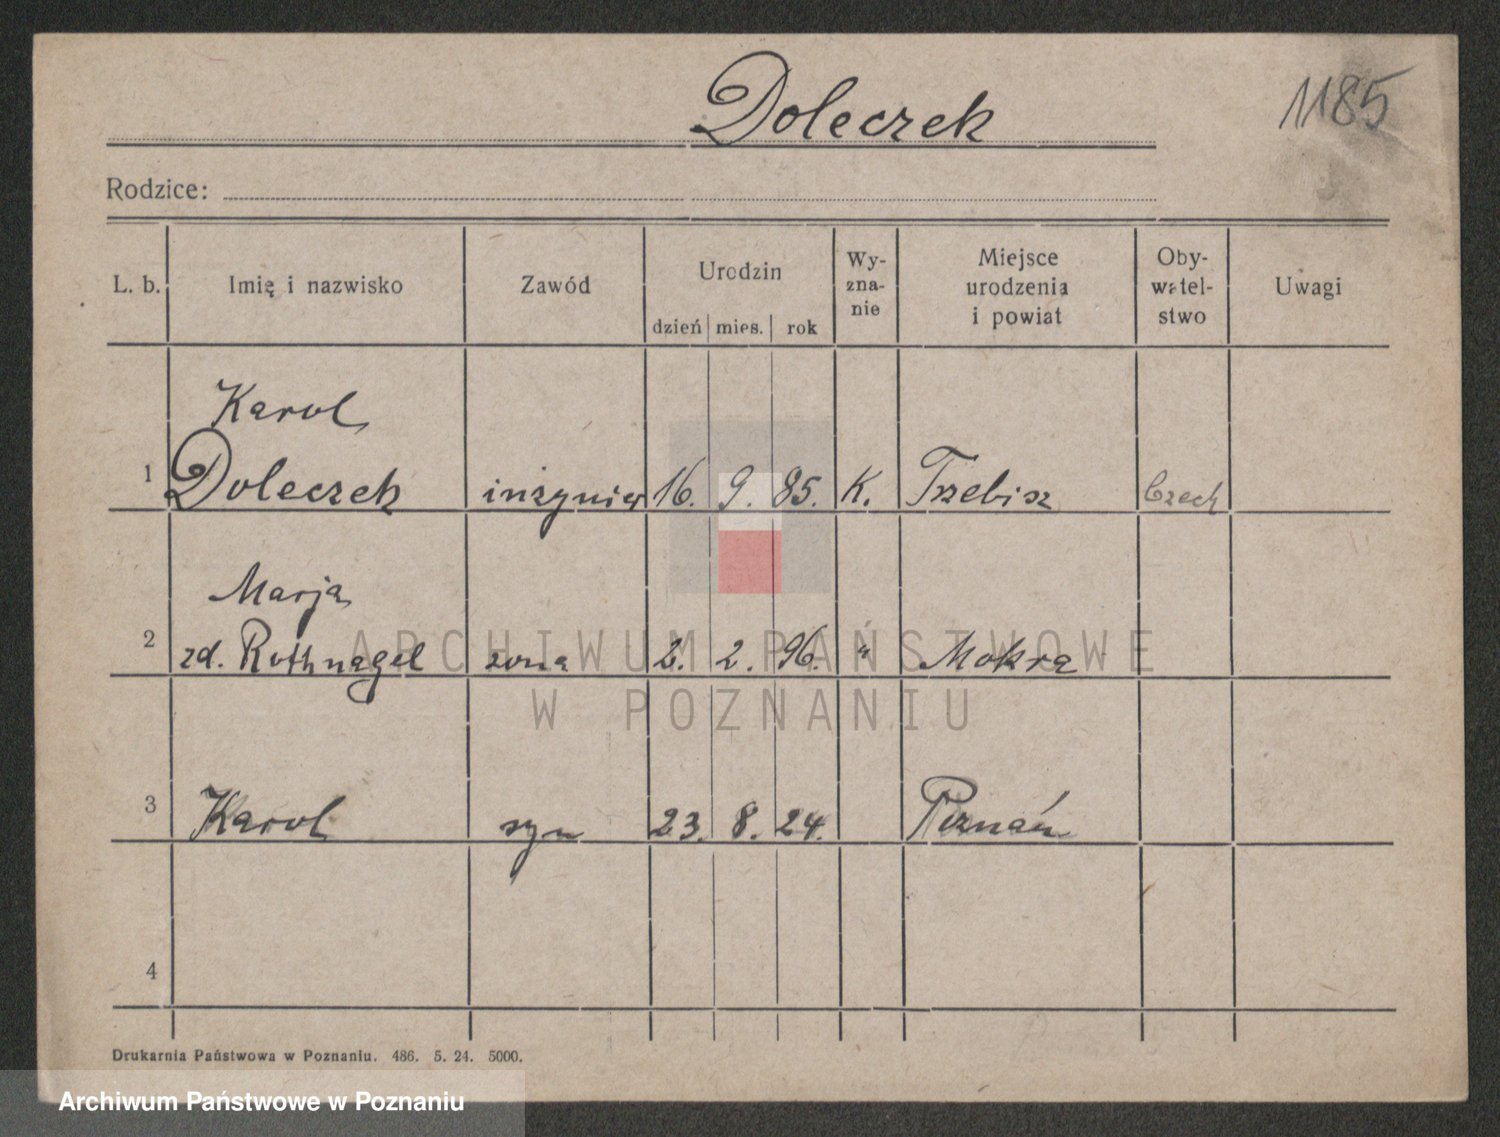 Doleczek
1185
Rodzice:
L. b. Imię i nazwisko Zawód Urodzin dzień mies. rok Wy-zna-nie Miejsce urodzenia i powiat Oby-watel-stwo Uwagi
Karol
1 Doleczek inżynier 16. 9. 85. K. Trzebisz Czech
Marja
2 zd. Rothnagel żona 2. 2. 96. " Mokra
3 Karol syn 23. 8. 24. Poznań
4
Drukarnia Państwowa w Poznaniu. 486. 5. 24. 5000.
ARCHIWUM PAŃSTWOWE
W POZNANIU
Archiwum Państwowe w Poznaniu